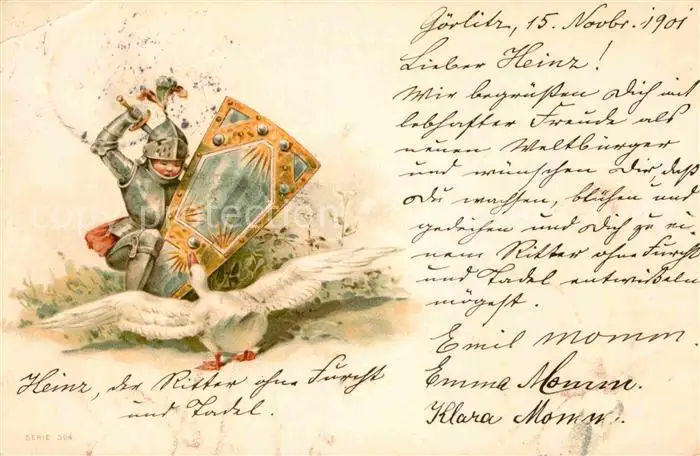 Görlitz, 15. Novbr. 1901
Lieber Heinz!
Wir begrüßen Dich mit
lebhafter Freude als
neuen Weltbürger
und wünschen Dir, daß
Du wachsen, blühen und
gedeihen und Dich zu ei-
nem Ritter ohne Furcht
und Tadel entwickeln
mögest.
Emil Momm.
Emma Momm.
Klara Momm.
Heinz, der Ritter ohne Furcht
und Tadel.
SERIE 504